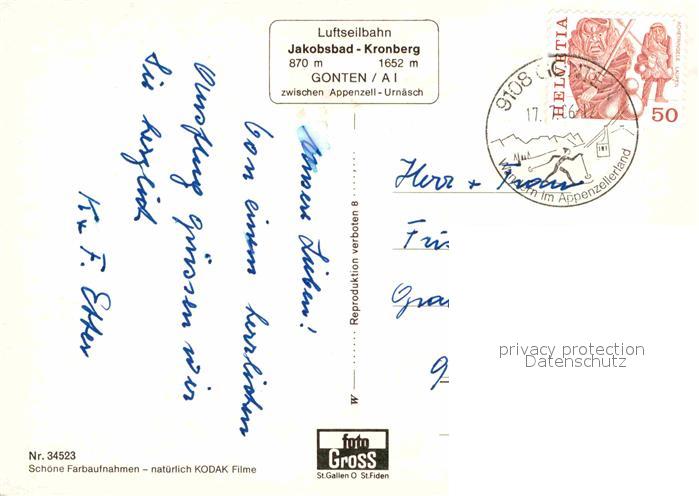 Luftseilbahn
Jakobsbad - Kronberg
870 m 1652 m
GONTEN / A I
zwischen Appenzell - Urnäsch
HELVETIA
50
9108 GONTEN
17.
Wandern im Appenzellerland
Unsere Lieben!
Von einem herrlichen
Ausflug grüssen wir
Sie herzlich
K + F. Etter
Herr + Frau
Fri
Gra
9
W —— ...... Reproduktion verboten 8 ......
privacy protection
Datenschutz
foto
GROSS
St.Gallen O St.Fiden
Nr. 34523
Schöne Farbaufnahmen – natürlich KODAK Filme